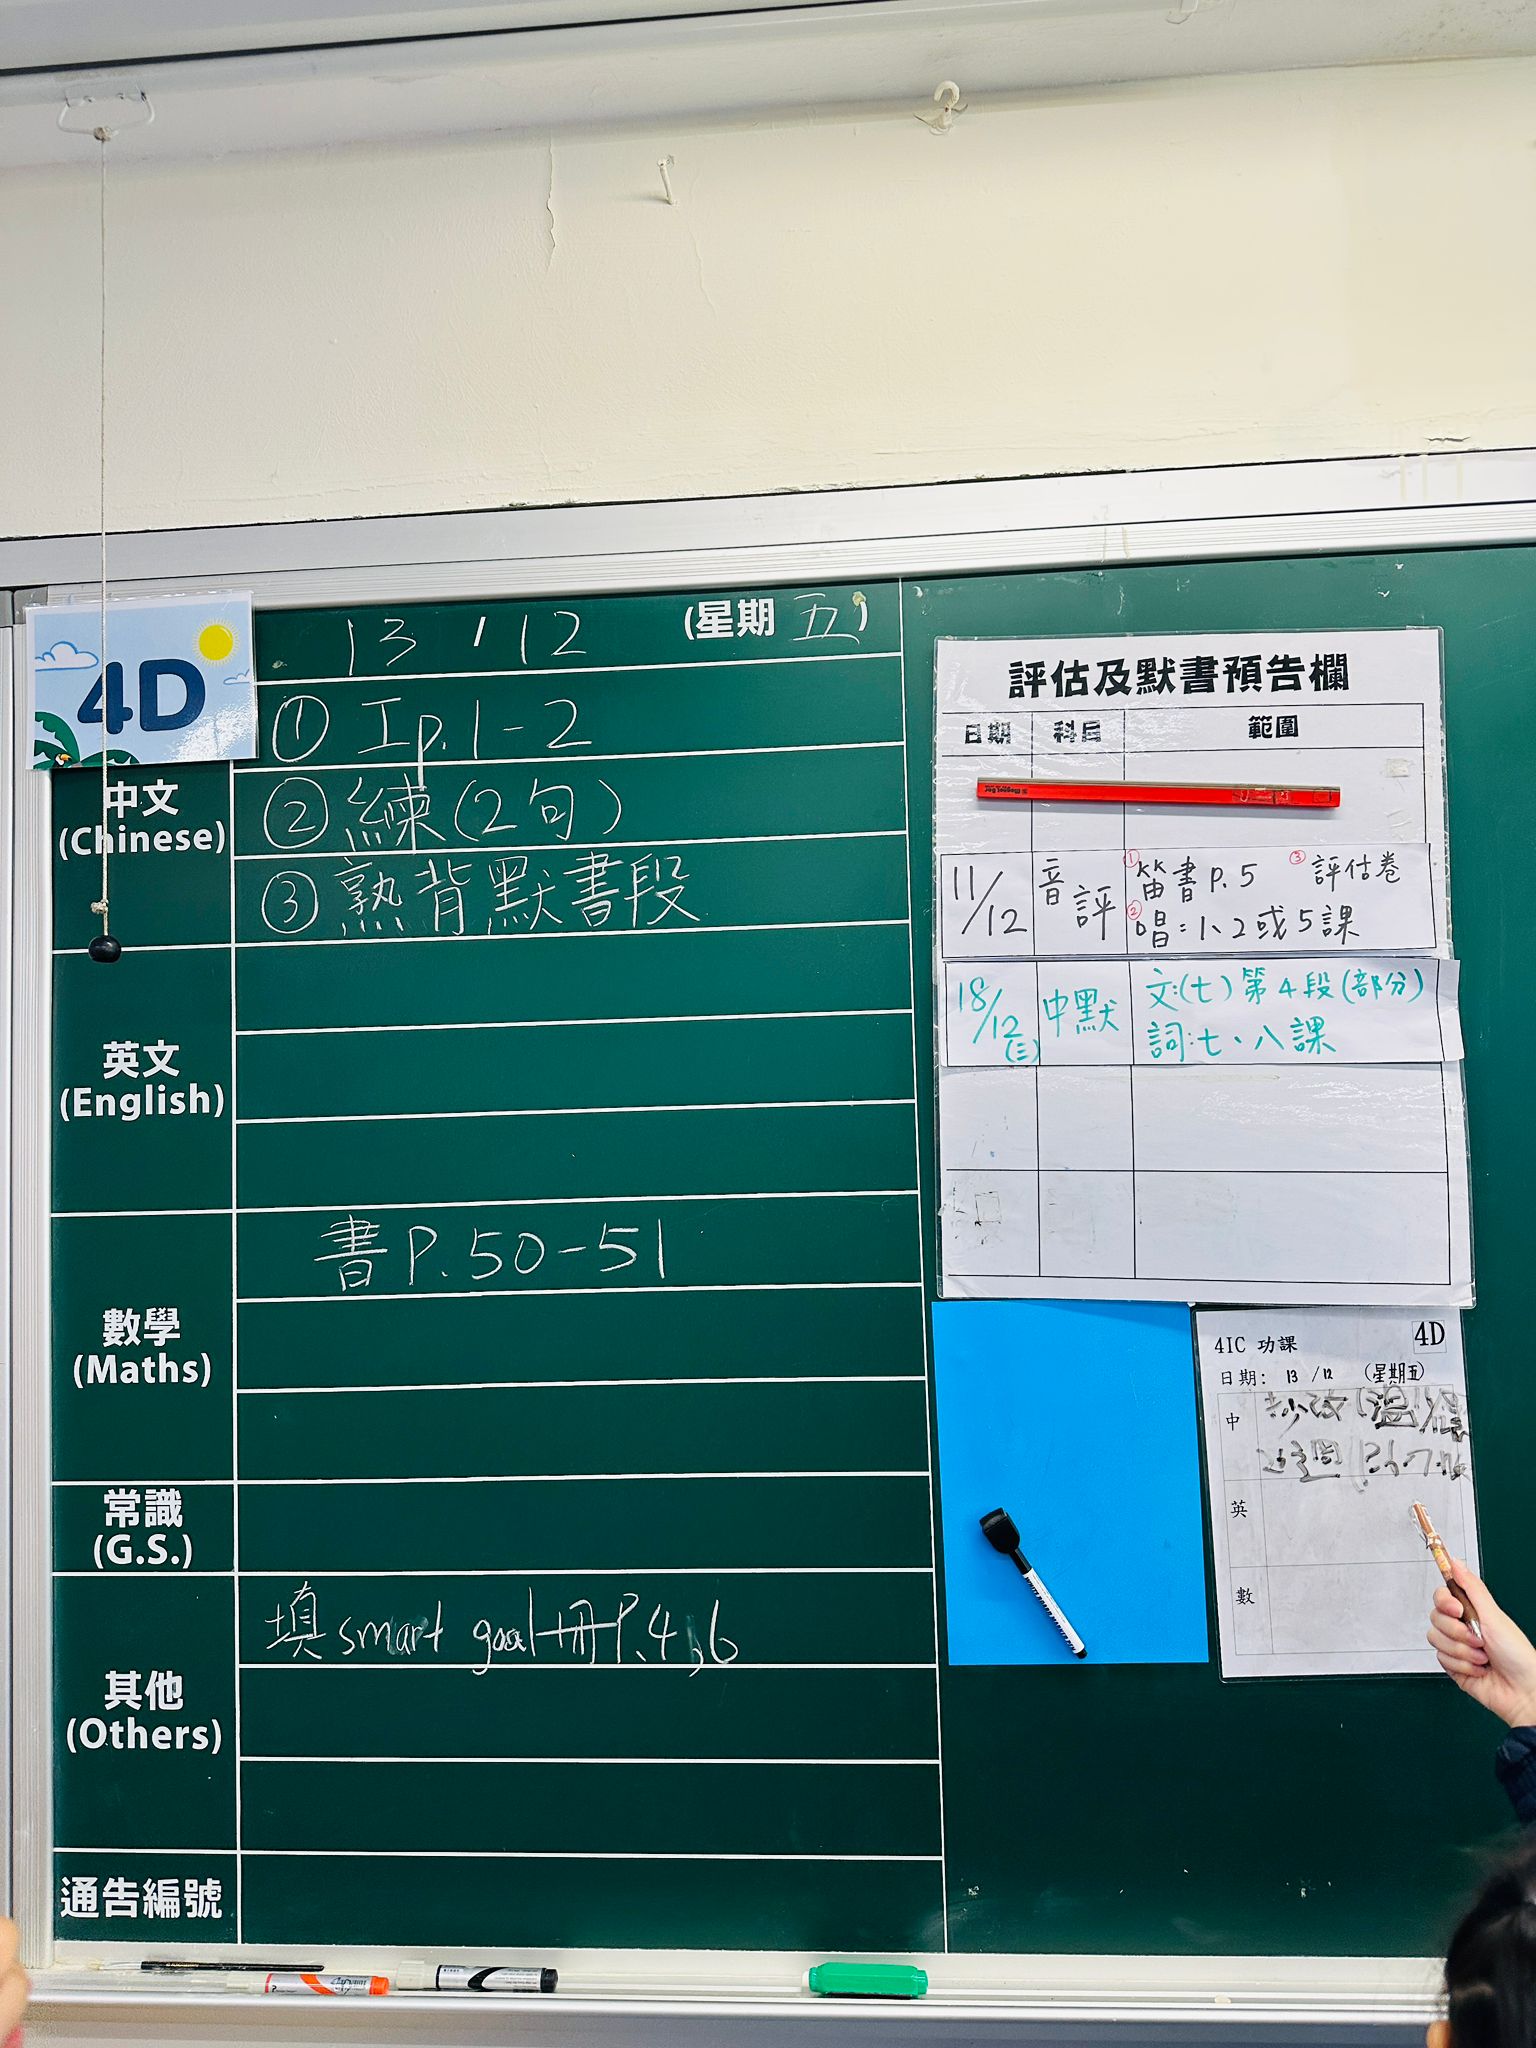 4D
13 / 12 (星期 五)
中文
(Chinese)
① Ip.1-2
② 練(2句)
③ 熟背默書段
英文
(English)
數學
(Maths)
書P.50-51
常識
(G.S.)
其他
(Others)
填smart goal冊P.4,6
通告編號
評估及默書預告欄
日期 科目 範圍
11/12 音評 ①笛書P.5 ③評估卷
②唱:1、2或5課
18/12(三) 中默 文:(七)第4段(部分)
詞:七、八課
4IC 功課 4D
日期: 13 /12 (星期五)
中
英
數